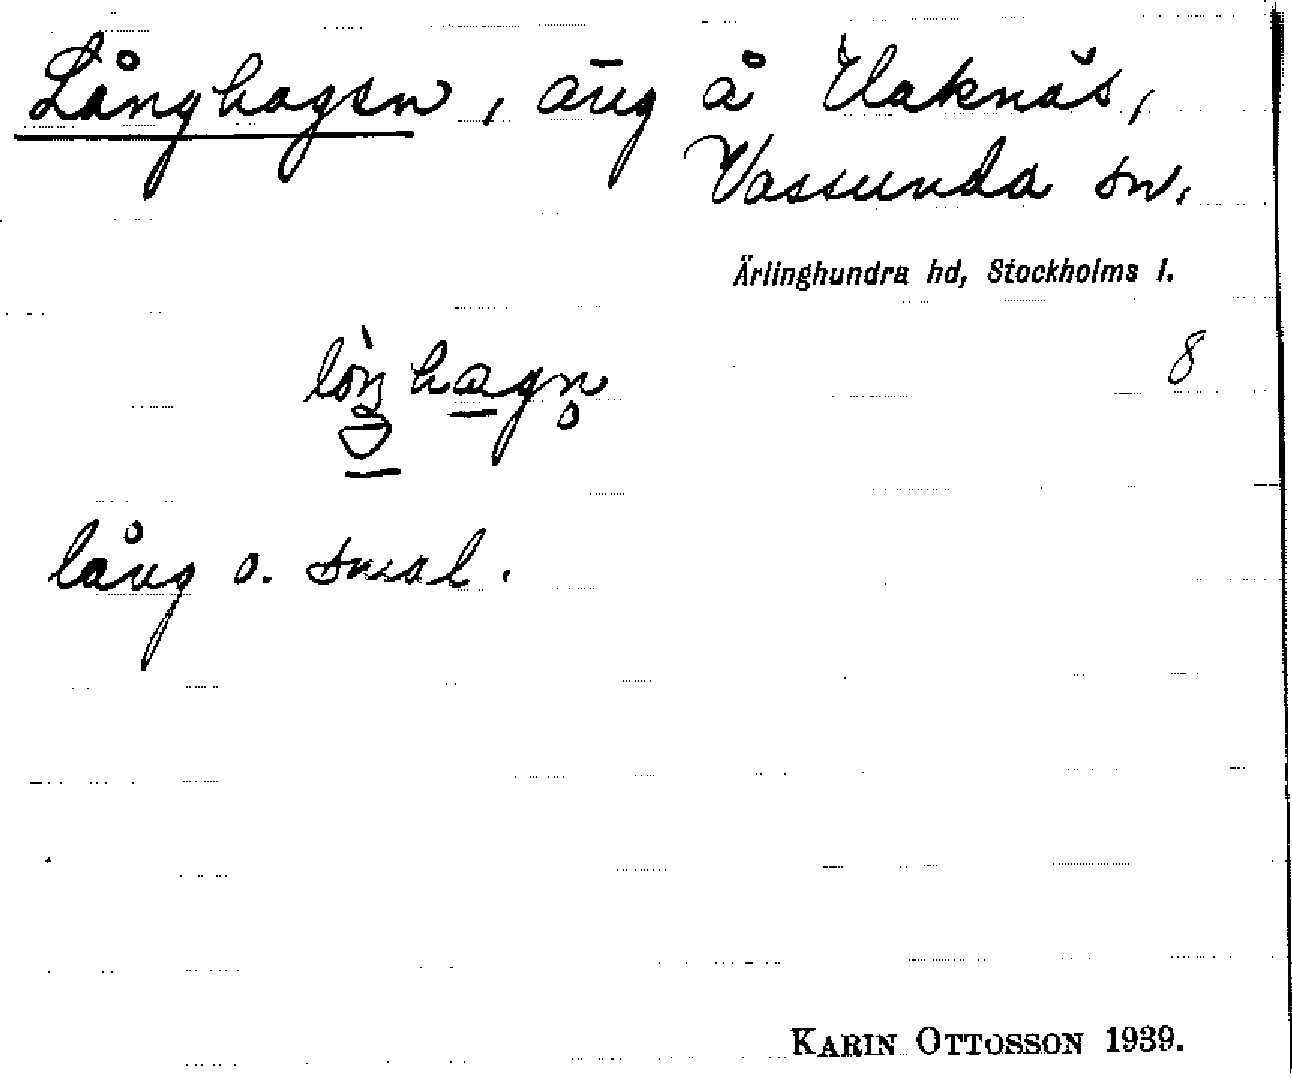 Långhagen, äng å Vaknäs,
Vassunda sn.
Ärlinghundra hd, Stockholms l.
8
lång o. smal.
KARIN OTTOSSON 1939.